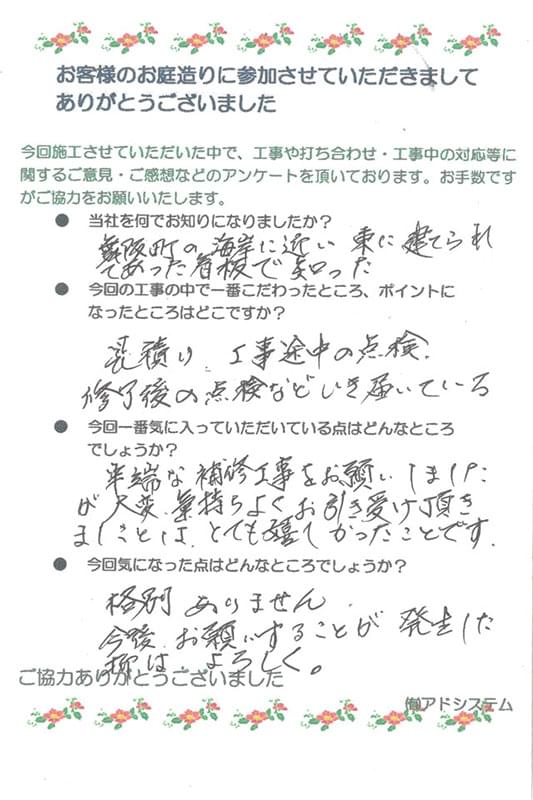 お客様のお庭造りに参加させていただきまして
ありがとうございました
今回施工させていただいた中で、工事や打ち合わせ・工事中の対応等に
関するご意見・ご感想などのアンケートを頂いております。お手数です
がご協力をお願いいたします。
● 当社を何でお知りになりましたか?
町の海岸に近い 東に建てられ
てあった看板で知った
● 今回の工事の中で一番こだわったところ、ポイントに
なったところはどこですか?
見積り、工事途中の点検、
修了後の点検などいき届いている
● 今回一番気に入っていただいている点はどんなところ
でしょうか?
半端な補修工事をお願いしました
が大変気持ちよくお引き受け頂き
ましたことは、とても嬉しかったことです。
● 今回気になった点はどんなところでしょうか?
格別ありません。
今後、お願いすることが発生した
際は、よろしく。
ご協力ありがとうございました
㈲アドシステム